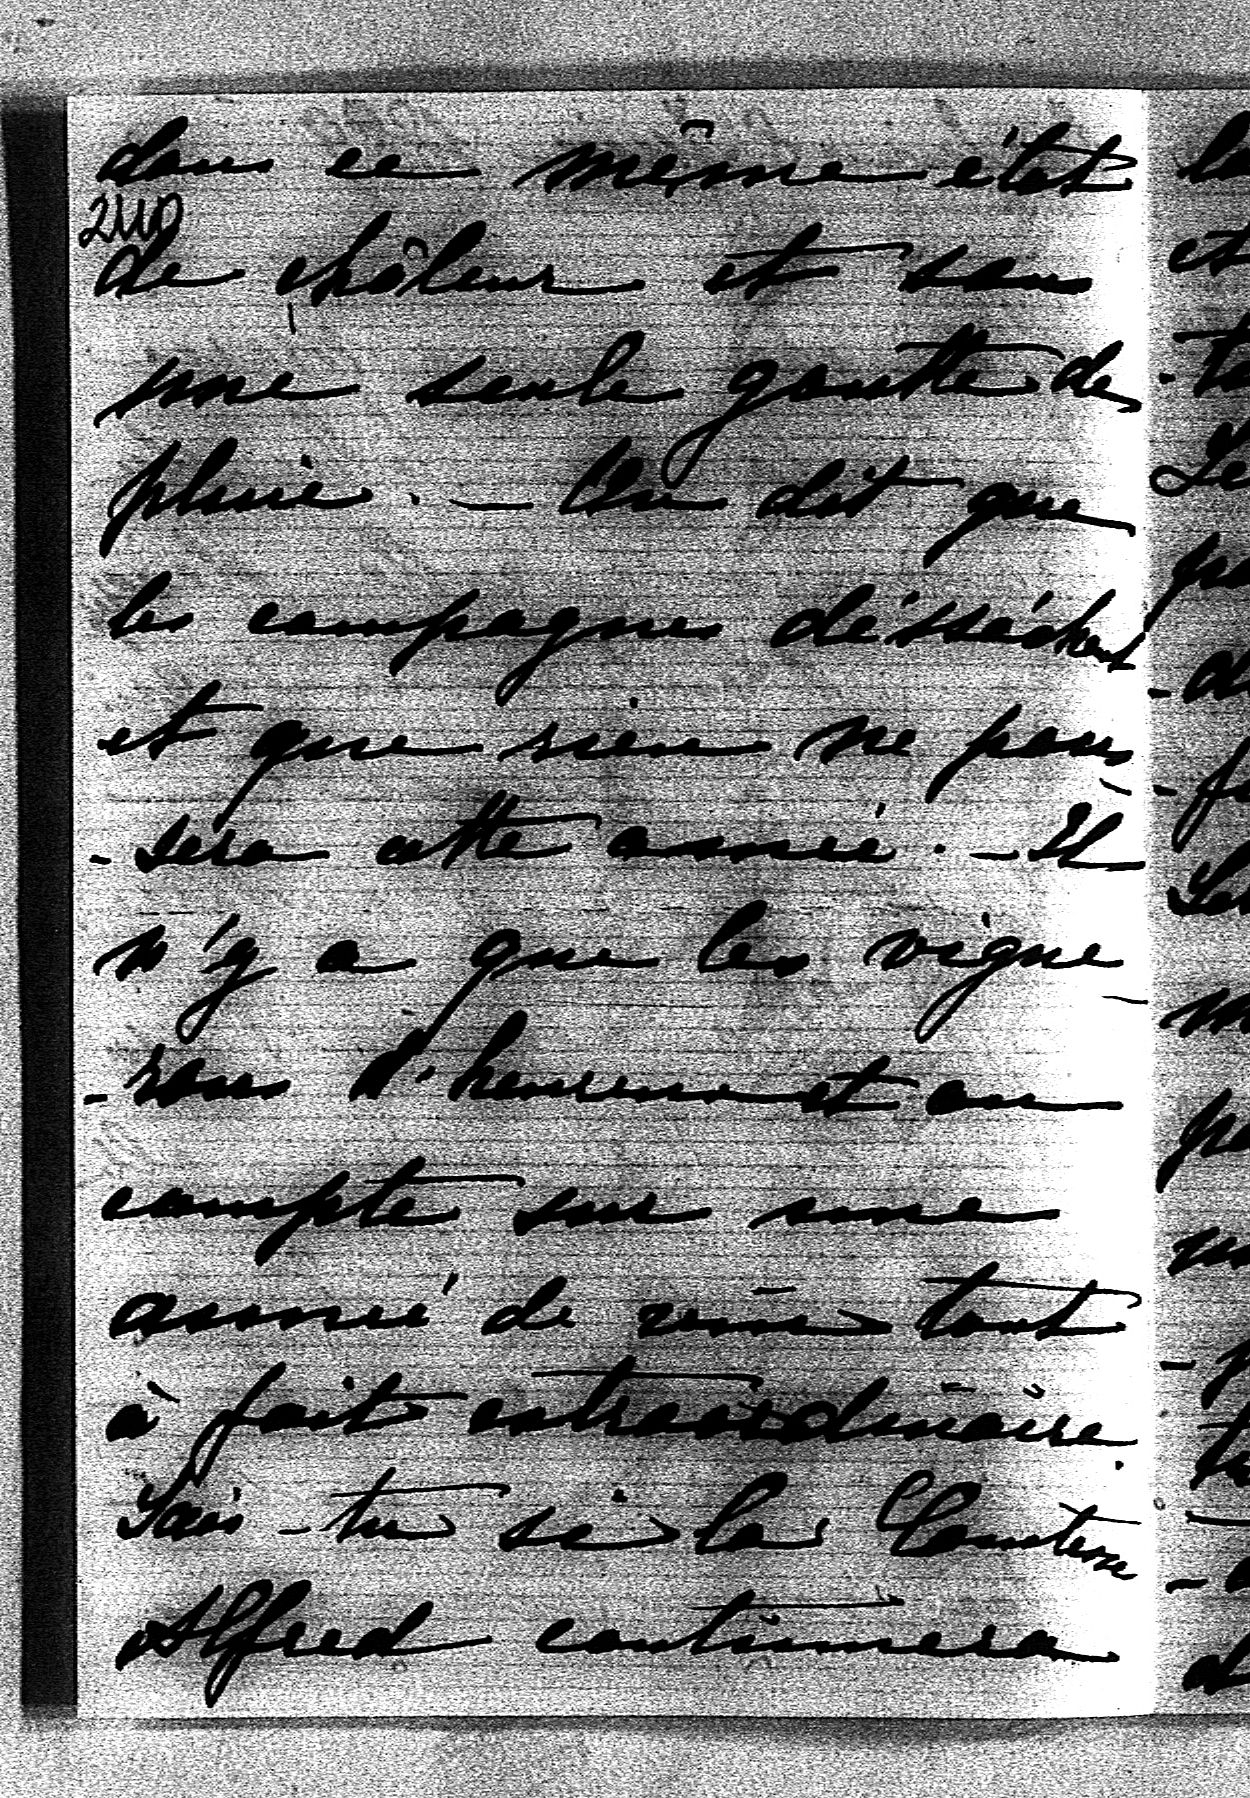 dans ce même état
de châleur et sans
une seule goutte de
pluie. — On dit que
les campagnes désséchent
et que rien ne pous
-sera cette année. — Il
n'y a que les vigne
-rons d'heureux et on
compte sur une
année de vins tout
à fait extraordinaire.
Sais-tu si la Comtesse
Alfred continuera